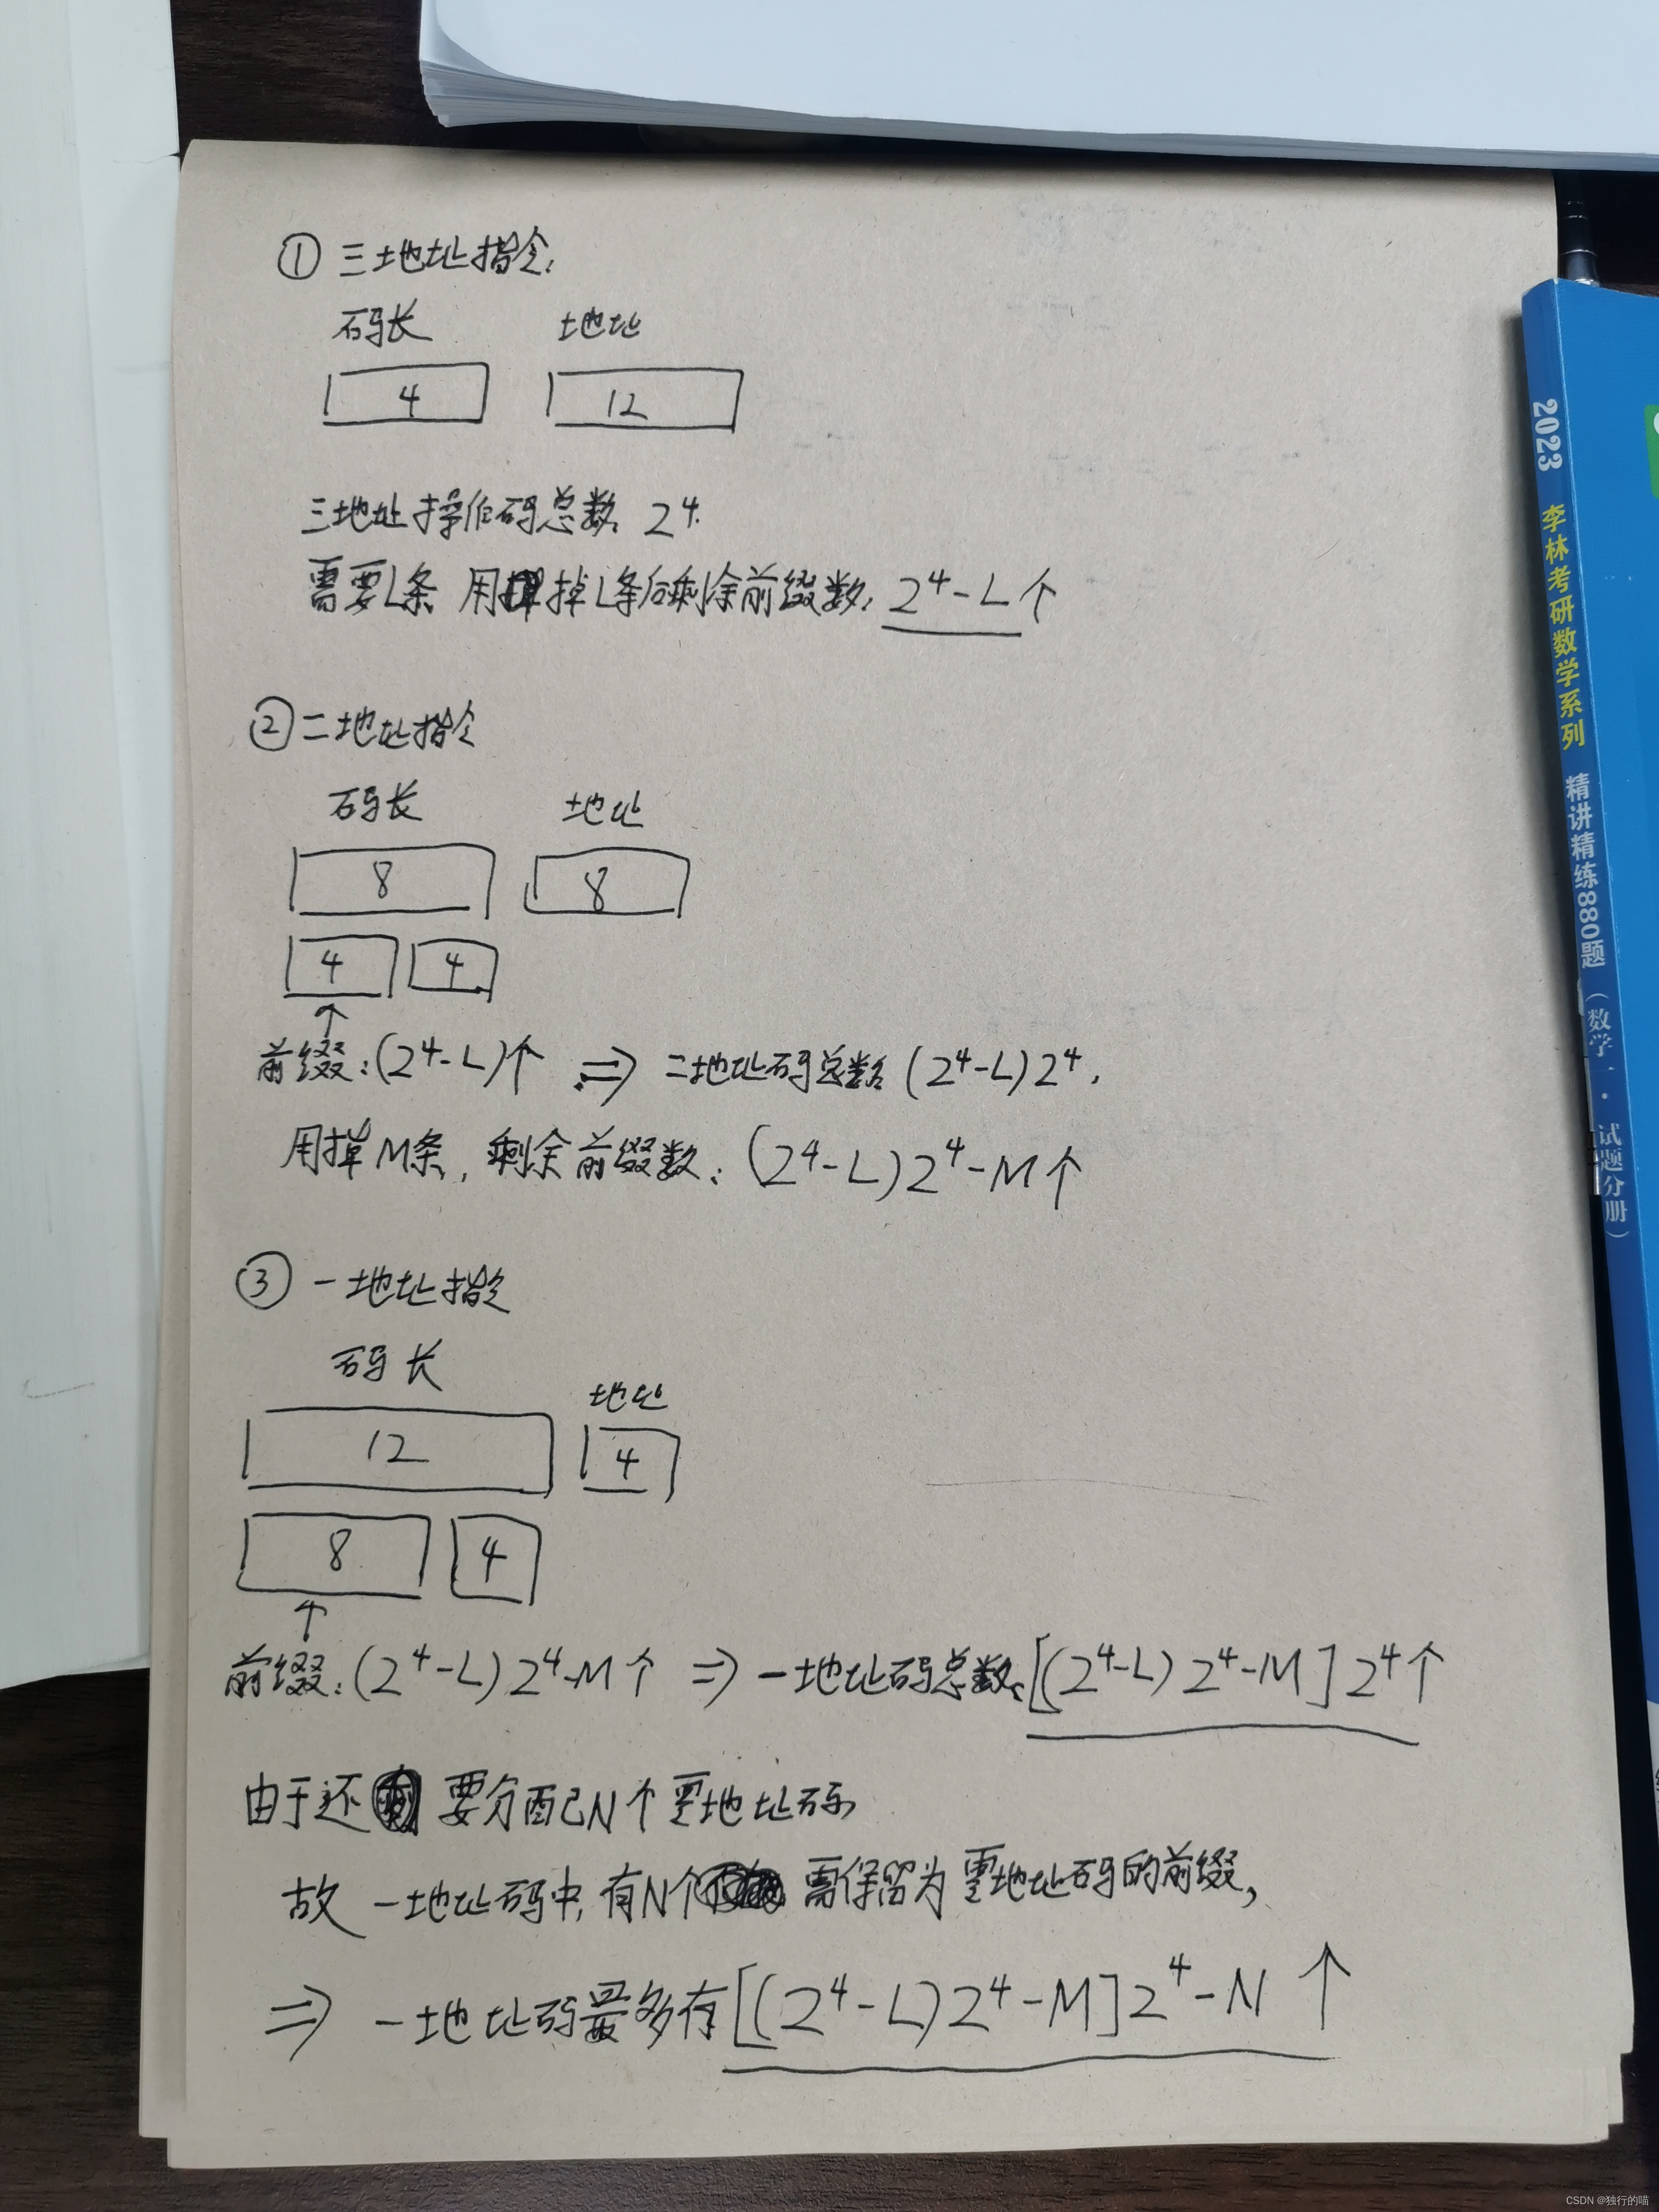 ① 三地址指令:
码长 地址
4 12
三地址操作码总数: 2⁴.
需要L条 用掉L条后剩余前缀数: 2⁴-L个
② 二地址指令
码长 地址
8 8
4 4
↑
前缀:(2⁴-L)个 ⇒ 二地址码总数 (2⁴-L)2⁴.
用掉M条, 剩余前缀数: (2⁴-L)2⁴-M个
③ 一地址指令
码长 地址
12 4
8 4
↑
前缀:(2⁴-L)2⁴-M个 ⇒ 一地址码总数:[(2⁴-L)2⁴-M]2⁴个
由于还要分配N个零地址码,
故 一地址码中,有N个需保留为零地址码的前缀,
⇒ 一地址码最多有[(2⁴-L)2⁴-M]2⁴-N个
2023 李林考研数学系列 精讲精练880题(数学一·试题分册)
CSDN @独行的喵